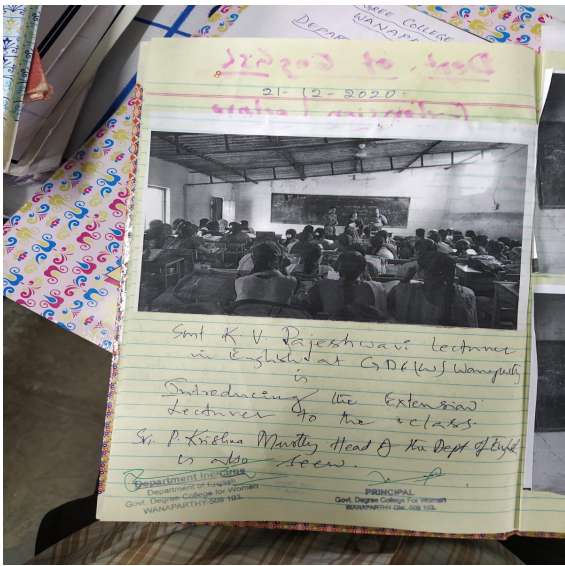 GREE COLLEGE
WANAPA
DEPAR
Dept. of English
21-12-2020
Extension Lecture
Smt K V Rajeshwari Lecturer
in English at GDC(W) Wanaparthy
is
Introducing the Extension
Lecturer to the class.
Sri. P. Krishna Murthy Head of the Dept of English
is also seen.
Department In-Charge
Department of English
Govt. Degree College for Woman
WANAPARTHY-509 103.
PRINCIPAL
Govt. Degree College For Women
WANAPARTHY-Dist. 509 103.